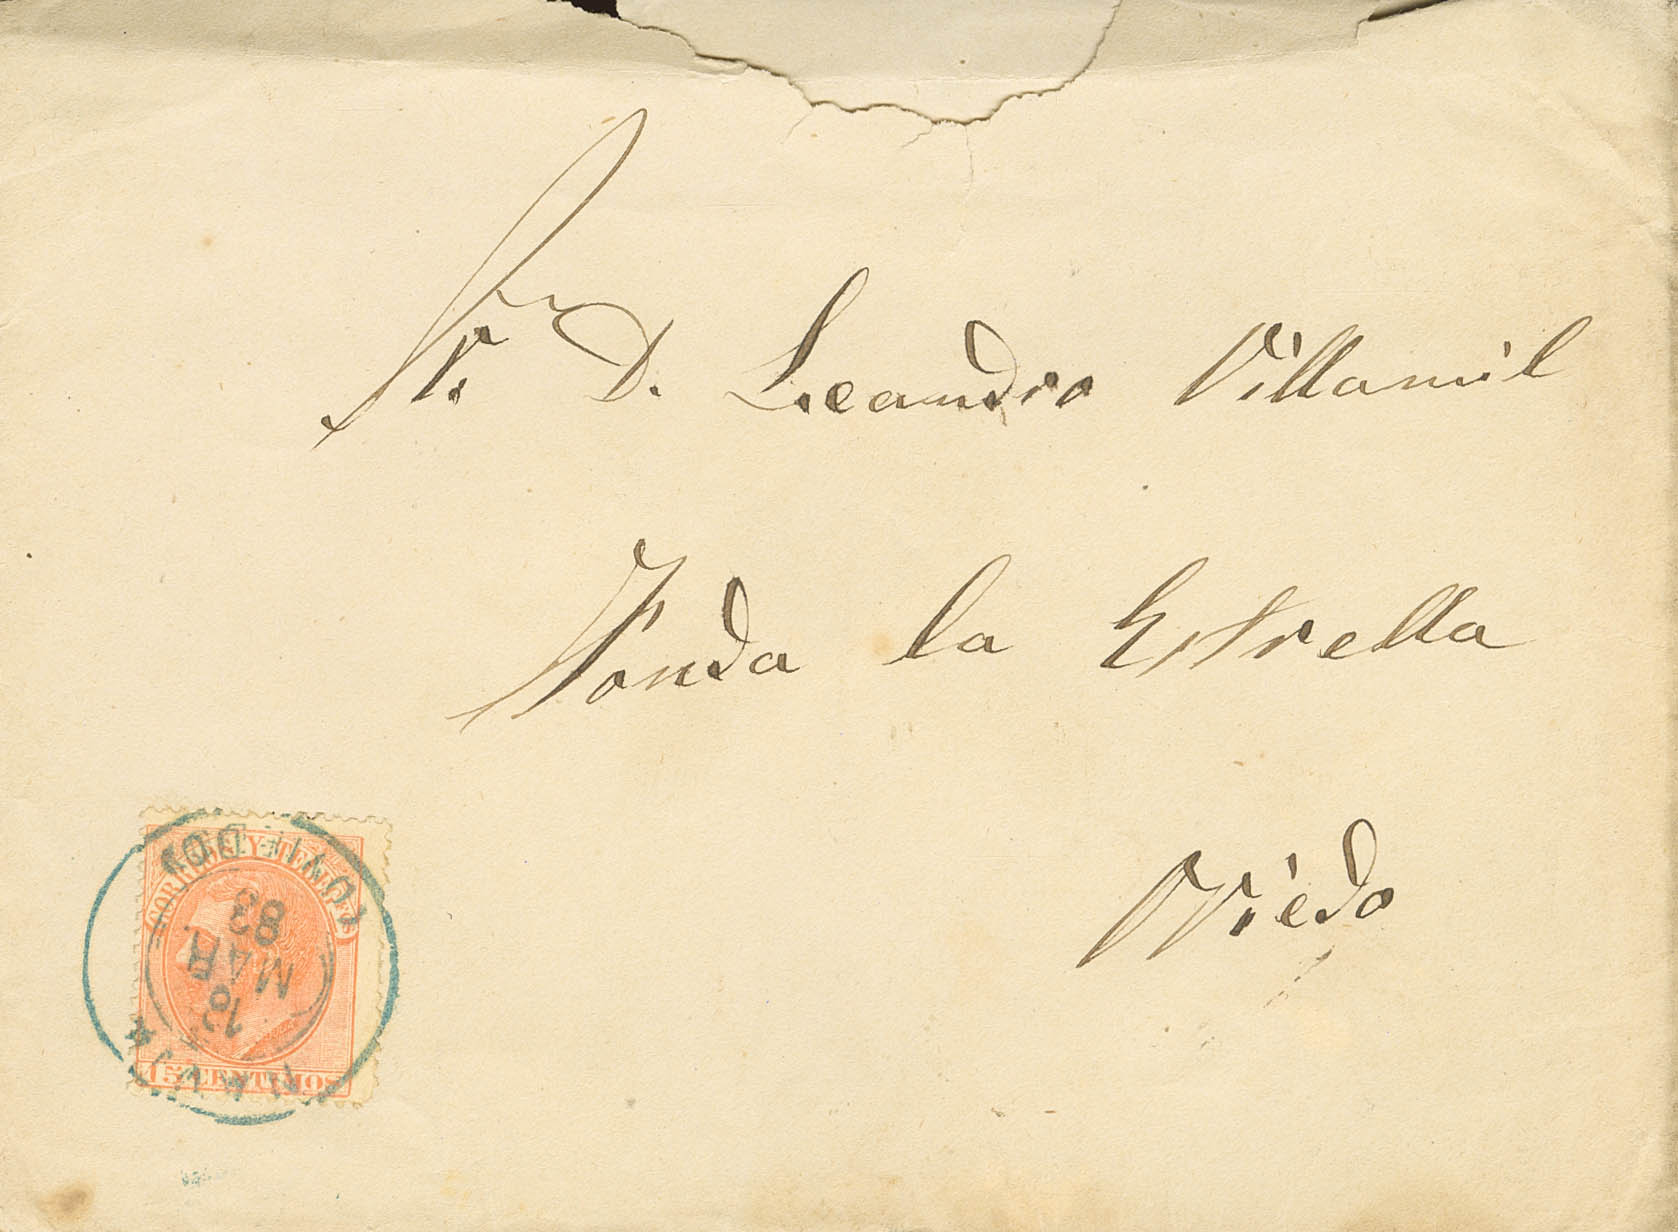 Sr. D. Leandro Villamil
Fonda la Estrella
Oviedo
CORREOS Y TELEGFOS
15 CENTIMOS
18
MAR
83
OVIEDO